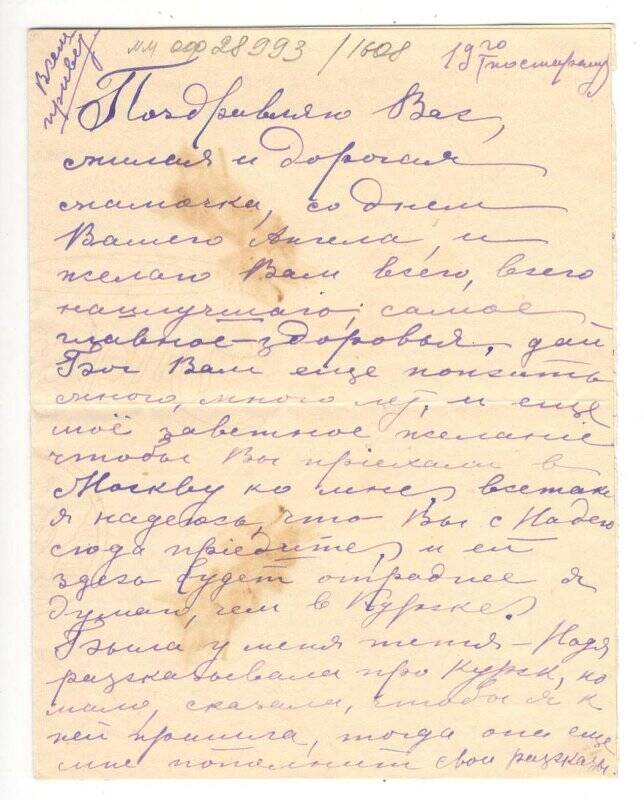 Всем привет
мм оф 28993 / 1608
19го
Поздравляю Васъ,
милая и дорогая
мамочка, со днем
Вашего Ангела, и
желаю Вам всего, всего
наилучшаго; самое
главное – здоровья, дай
Бог Вам еще пожить
много, много лет, и еще
моё заветное желание
чтобы Вы приехали в
Москву ко мне, все таки
я надеюсь, что Вы с Надею
сюда приедите, и ей
здесь будет отраднее я
думаю, чем в Курске.
Была у меня тетя – Надя
разсказывала про Курск, но
мало, сказала, чтобы я к
ней пришла, тогда они еще
мне пополнит свои разсказы.